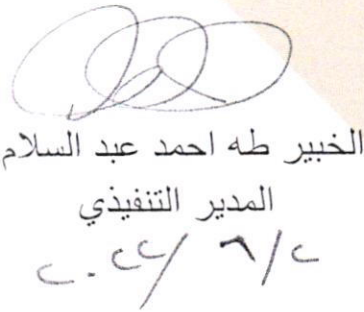 الخبير طه احمد عبد السلام
المدير التنفيذي
٢٠٢٢/٦/٢